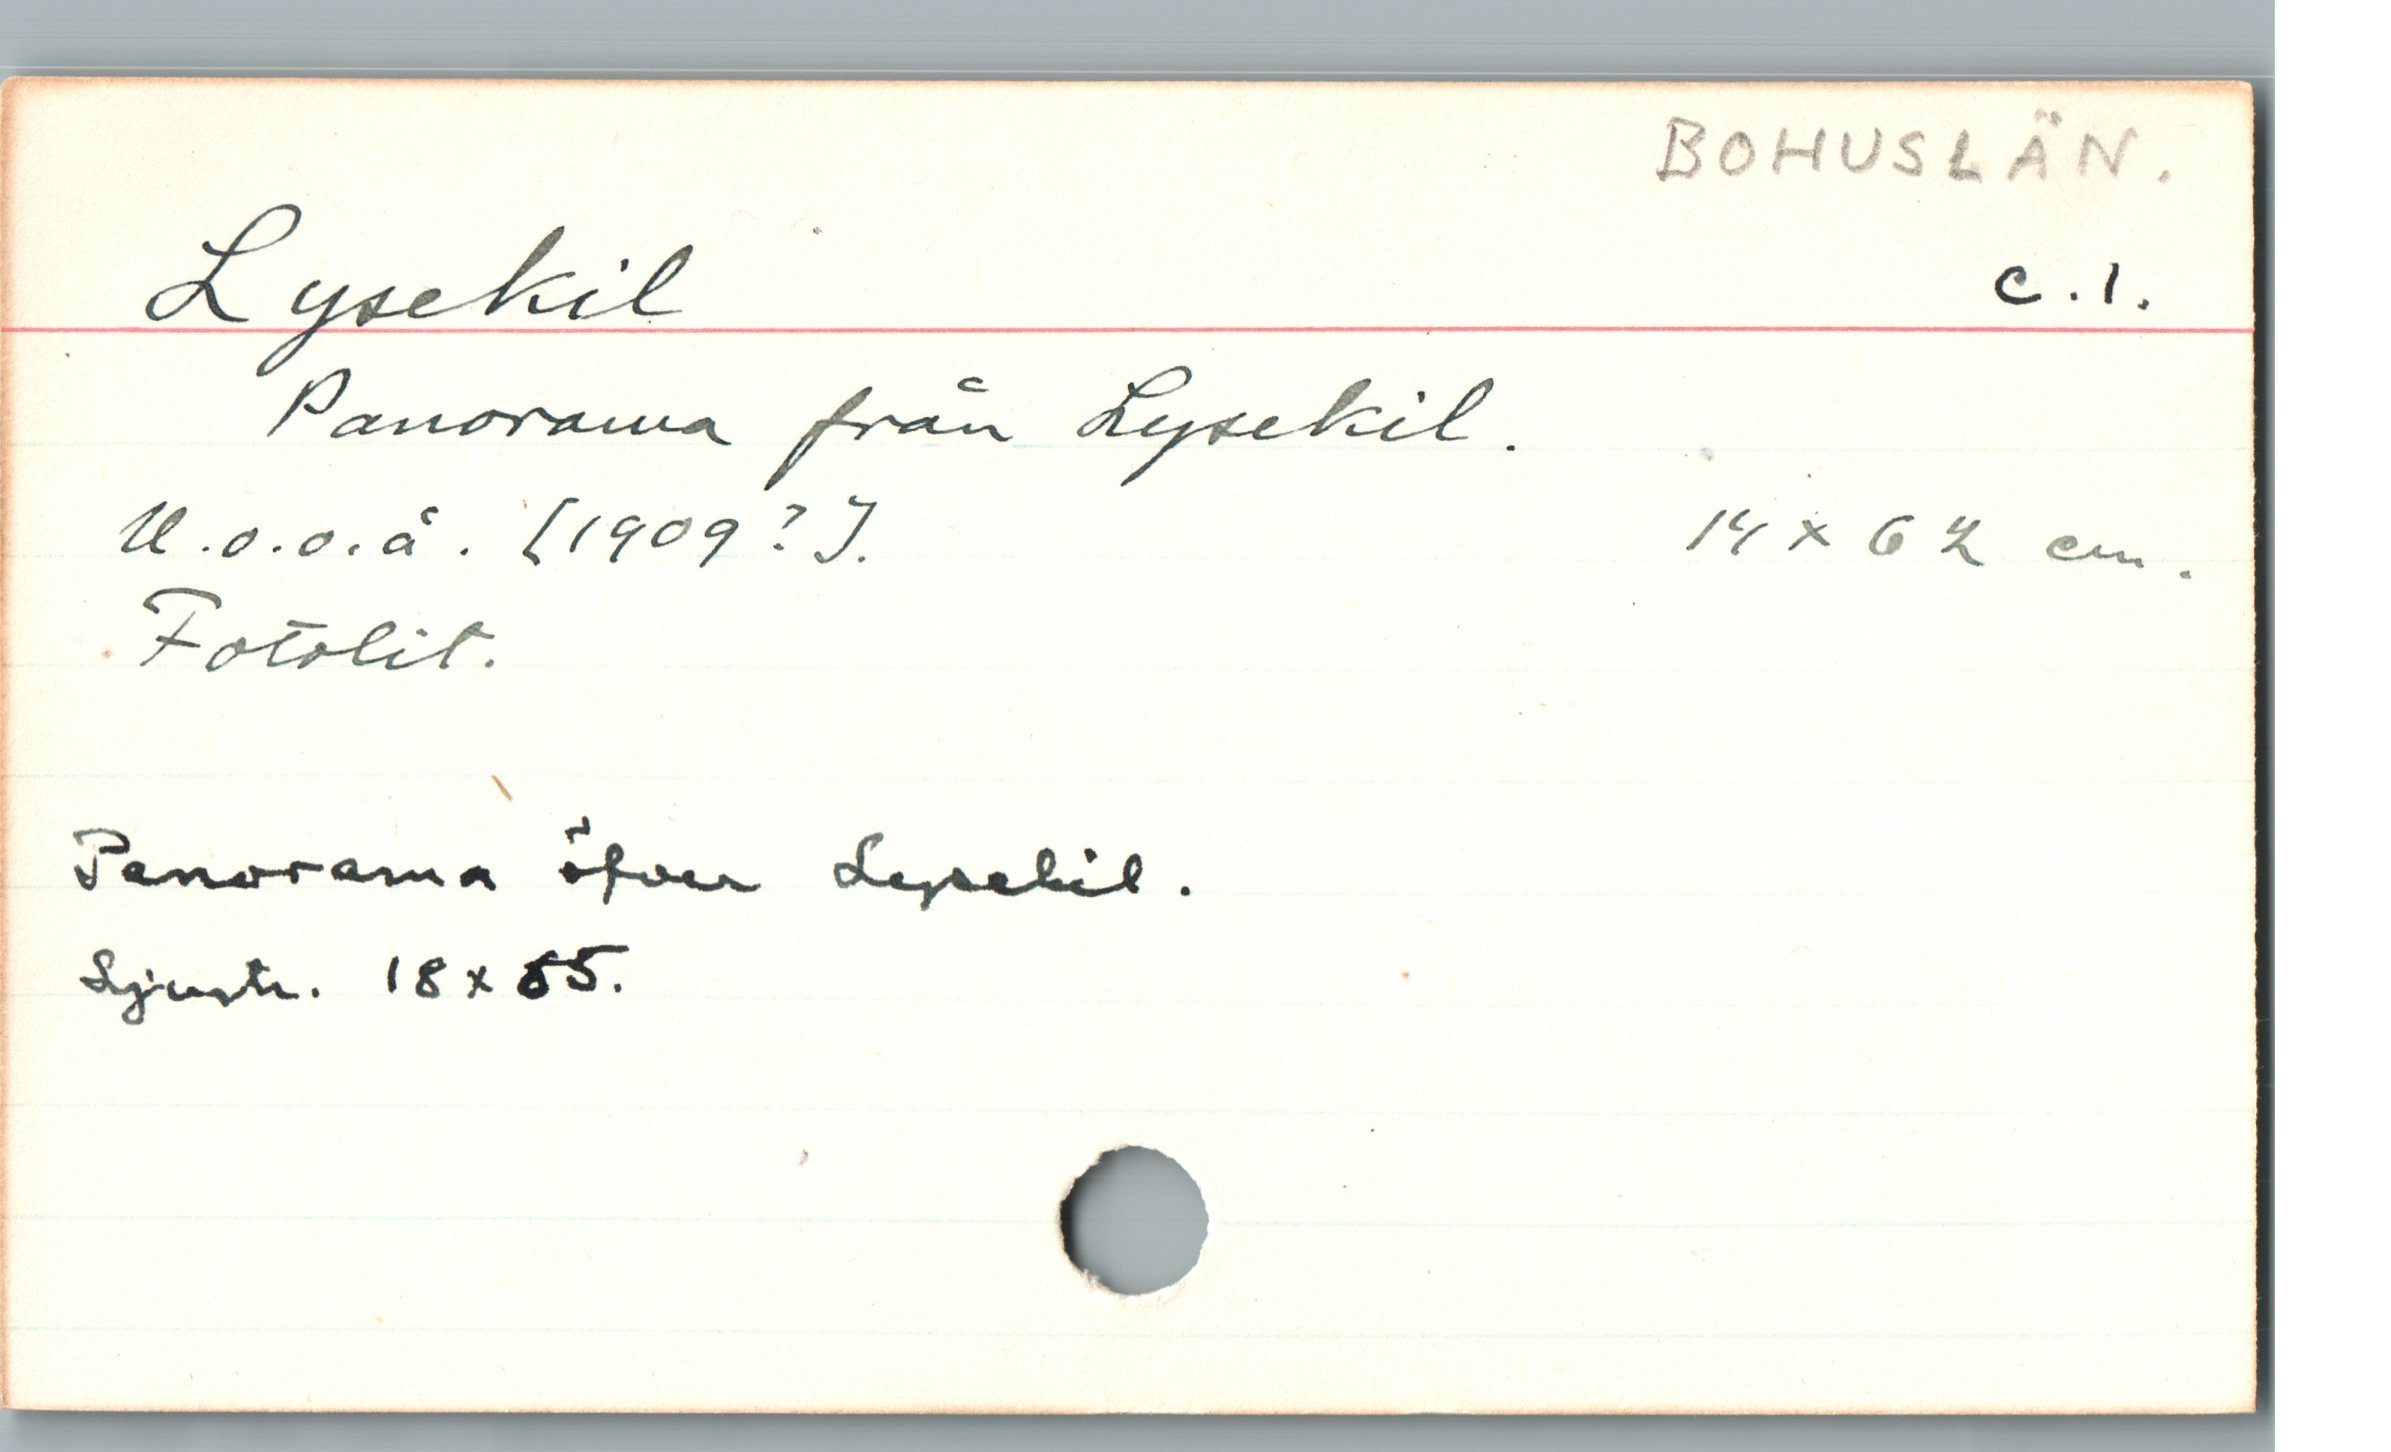 BOHUSLÄN.
Lysekil c.1.
Panorama från Lysekil.
U.o.o.å. [1909?]. 14 x 62 cm.
Fotolit.
Panorama öfver Lysekil.
Ljustr. 18 x 55.